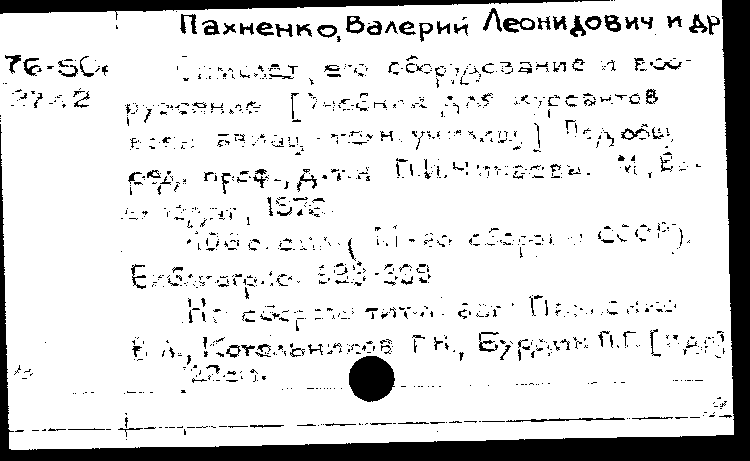 Пахненко, Валерий Леонидович и др
76-50
2742
Самолет, его оборудование и воо-
ружение [Учебник для курсантов
всех авиац. техн. училищ] Под общ.
ред. проф., д.т.н. П.И. Чинаева. М., Во-
ениздат, 1976.
с. ил. ( М-во обороны СССР).
Библиогр.: с.
На обороте титул. авт.: Пахненко
В.Л., Котельников Г.Н., Бурдин П.Г. [и др]
22 см.